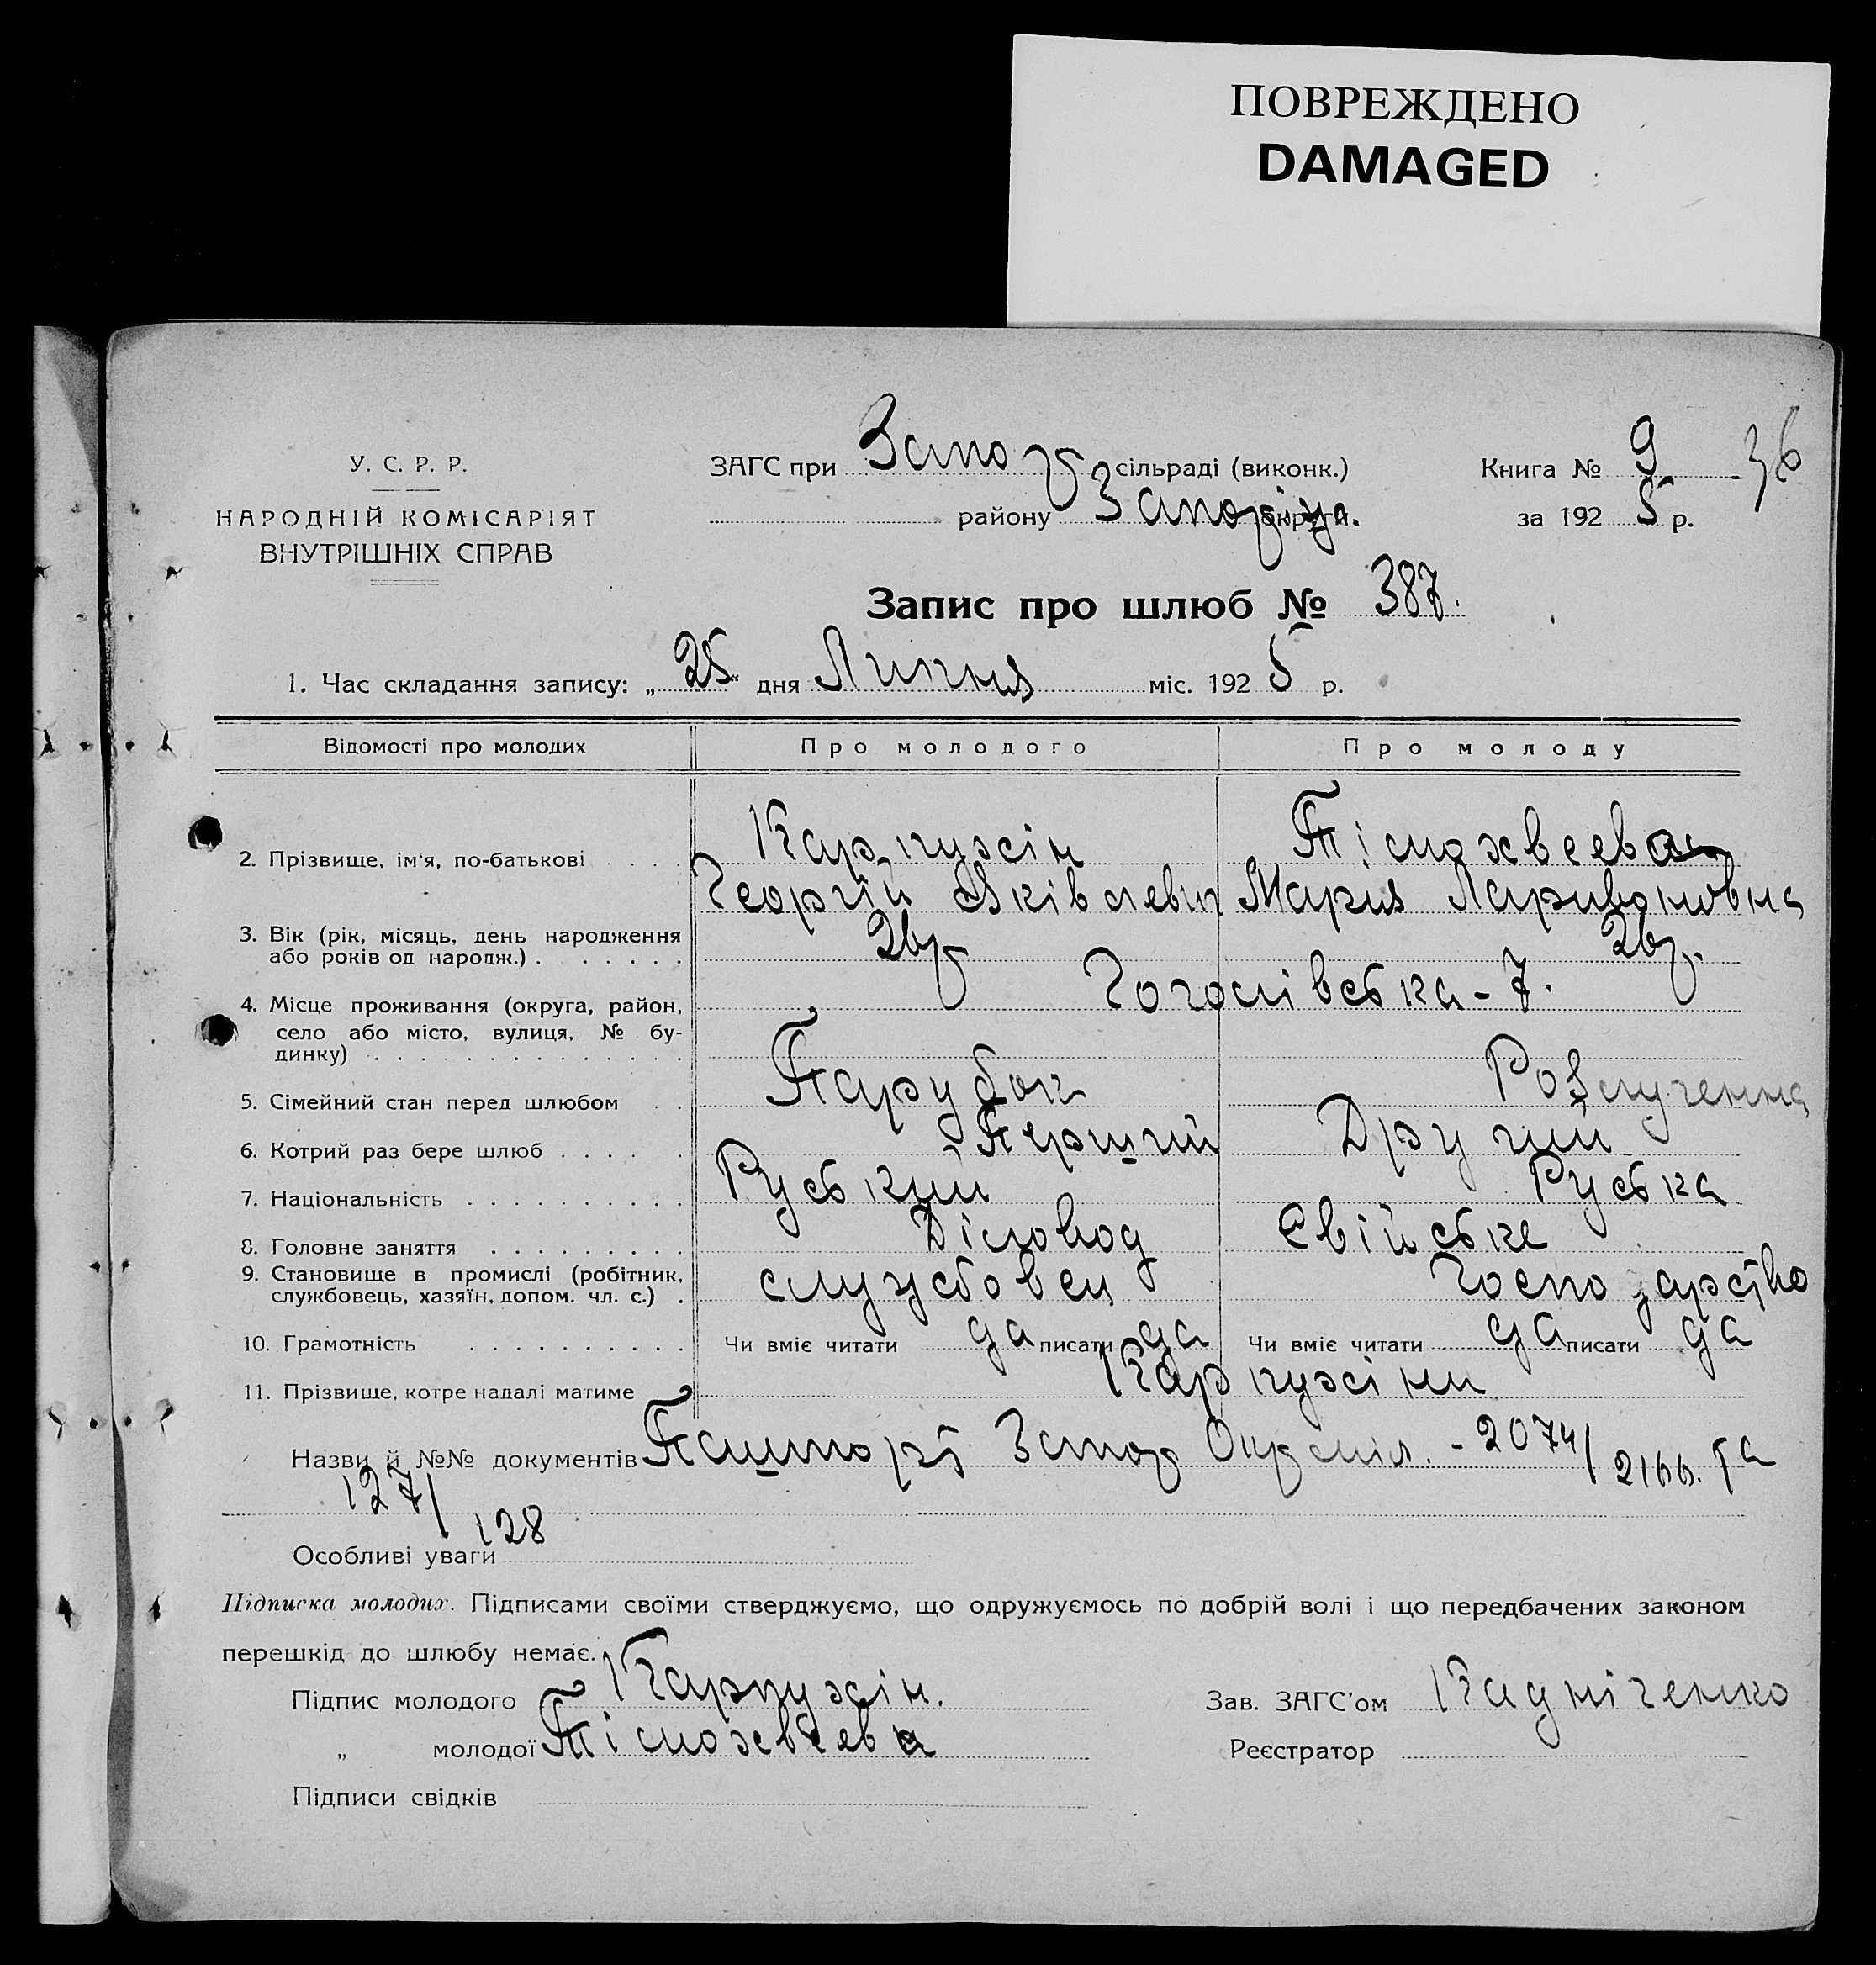 ПОВРЕЖДЕНО
DAMAGED
У. С. Р. Р.
НАРОДНІЙ КОМІСАРІЯТ
ВНУТРІШНІХ СПРАВ
ЗАГС при Запор сільраді (виконк.)
району Запоріз. округи.
Книга № 9 36
за 192 5 р.
Запис про шлюб № 387.
1. Час складання запису: „ 25 “ дня Липня міс. 192 5 р.
Відомості про молодих Про молодого Про молоду
2. Прізвище, ім'я, по-батькові . . . . Карпухін Тімохвеева
Георгій Яківлевіч Мария Ларивоновна
3. Вік (рік, місяць, день народження 26р 26р.
або років од народж.) . . . . . . .
Гоголівська - 7.
4. Місце проживання (округа, район,
село або місто, вулиця, № бу-
динку) . . . . . . . . . . . . . .
5. Сімейний стан перед шлюбом . . Парубок Розлученна
6. Котрий раз бере шлюб . . . . . Перший Другий
7. Національність . . . . . . . . . Руський Руська
8. Головне заняття . . . . . . . . . Діловод Свійське
9. Становище в промислі (робітник, службовец Господарство
службовець, хазяїн, допом. чл. с.) .
10. Грамотність . . . . . . . . . . Чи вміє читати да писати да Чи вміє читати да писати да
11. Прізвище, котре надалі матиме Карпухіни
Назви й №№ документів Пашпорт Запор Окрміл. - 2074/ 2166. та
127/ 128
Особливі уваги
Підписка молодих. Підписами своїми стверджуємо, що одружуємось по добрій волі і що передбачених законом
перешкід до шлюбу немає.
Підпис молодого Карпухін. Зав. ЗАГС'ом Кадніченко
„ молодої Тімохвеева Реєстратор
Підписи свідків